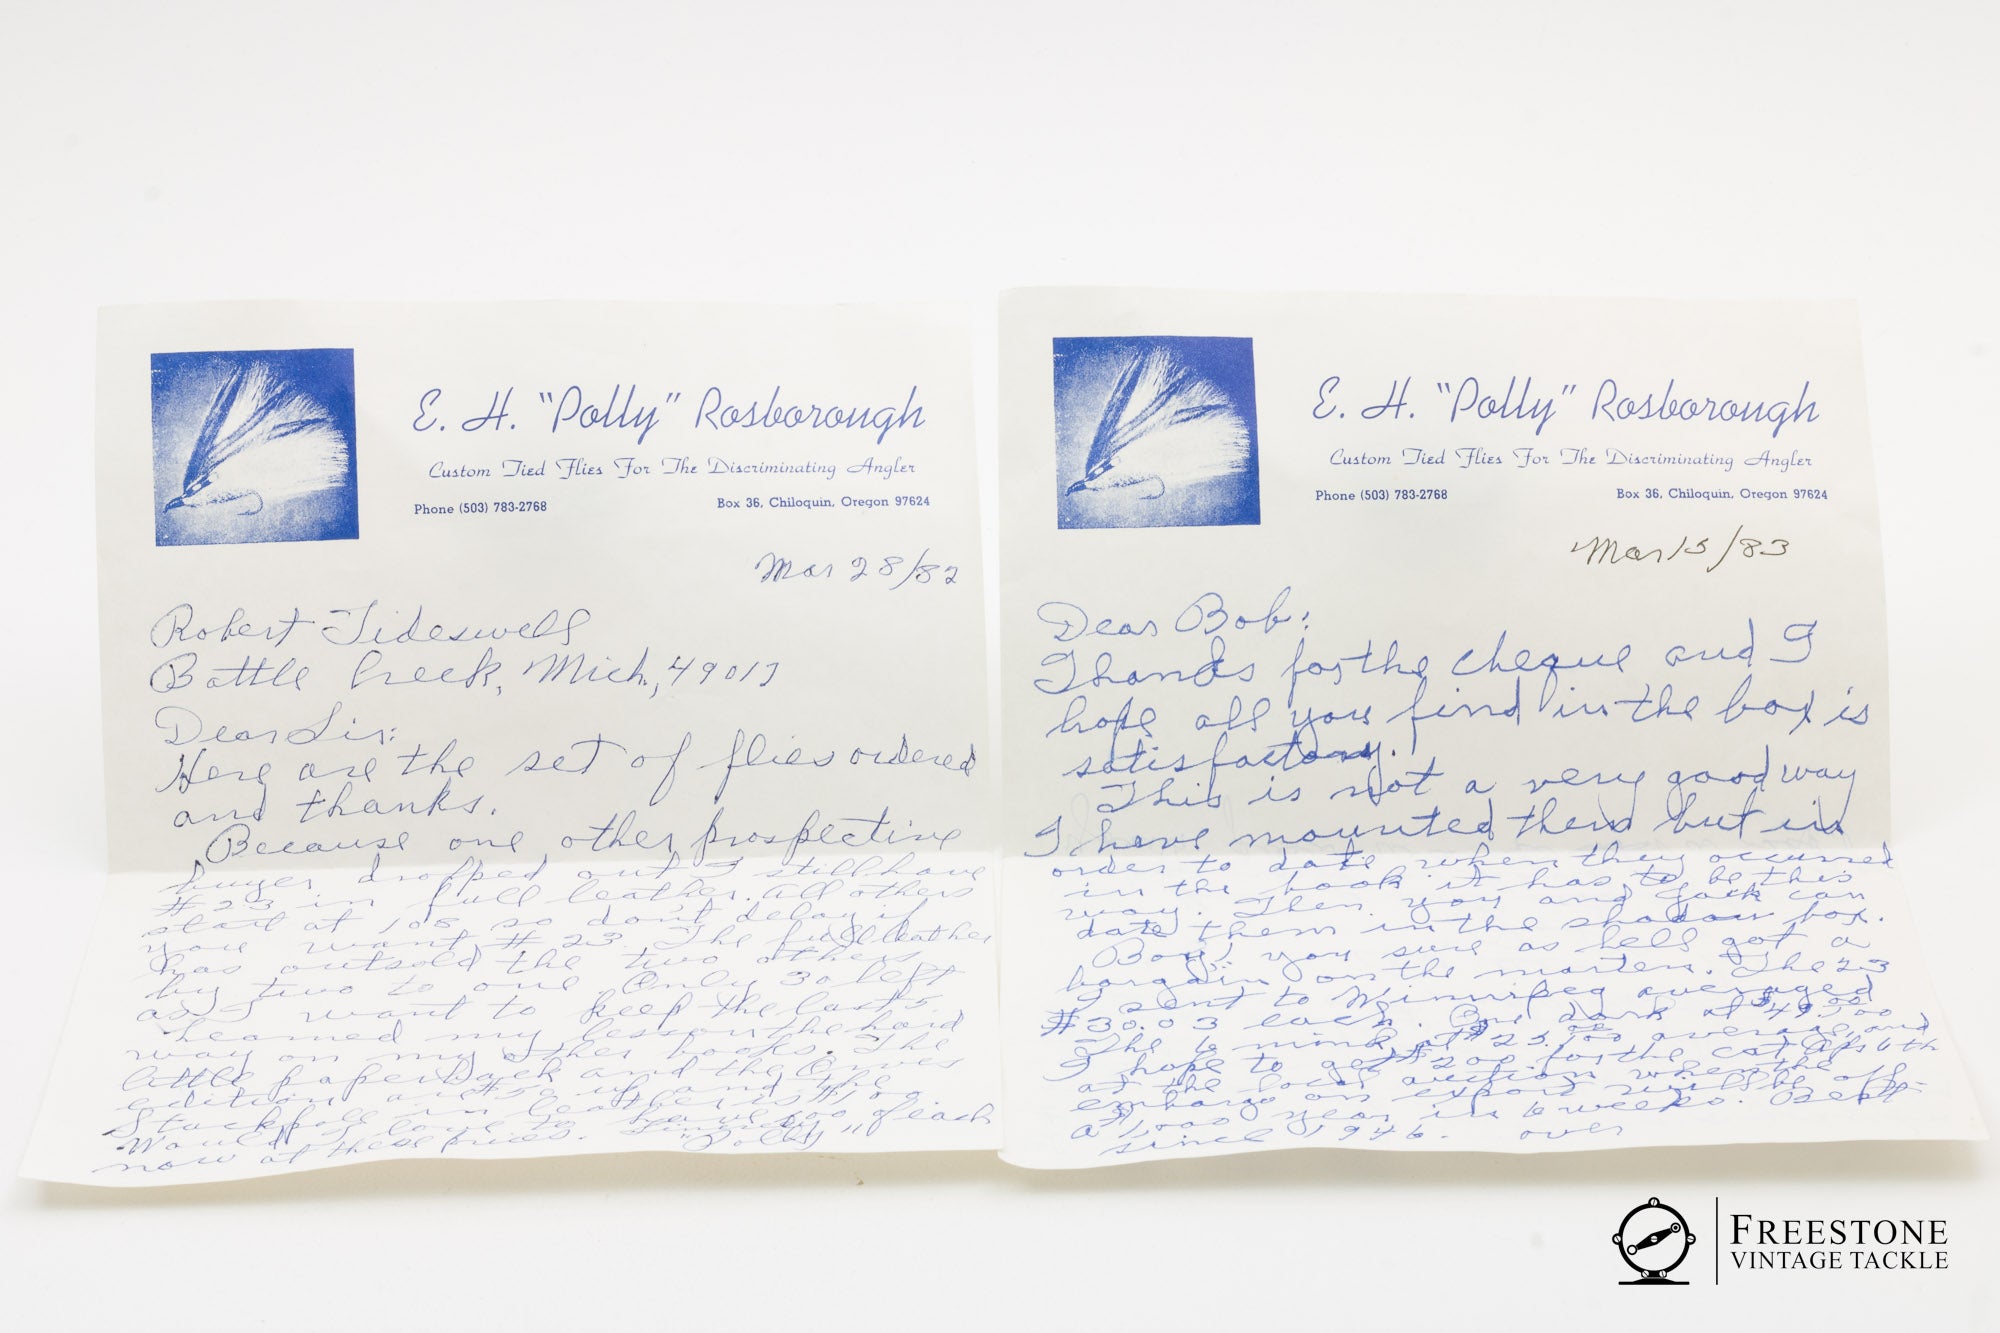 E. H. "Polly" Rosborough
Custom Tied Flies For The Discriminating Angler
Phone (503) 783-2768 Box 36, Chiloquin, Oregon 97624
Mar 28/82
Robert Tideswell
Battle Creek, Mich, 49017
Dear Sir:
Here are the set of flies ordered
and thanks.
Because one other prospective
buyer dropped out I still have
#23 in full leather. All others
start at 108 so don't delay if
you want #23. The full leather
has outsold the two others
by two to one. Only 30 left
as I want to keep the last 5.
Learned my lesson the hard
way on my other books. The
little paperback and the Orvis
edition are $50 up and the
Stackpole in leather is $100.
Would love to have 200 of each
now at these prices. Sincerely "Polly"
E. H. "Polly" Rosborough
Custom Tied Flies For The Discriminating Angler
Phone (503) 783-2768 Box 36, Chiloquin, Oregon 97624
Mar 15/83
Dear Bob:
Thanks for the cheque and I
hope all you find in the box is
satisfactory.
This is not a very good way
I have mounted them but in
order to date when they occurred
in the book it has to be this
way. Then you and Jack can
date them in the shadow box.
Boy, you sure as hell got a
bargain on the marten. The 23
I sent to Winnipeg averaged
$30.03 each. One dark at $49.00
The 6 mink at $23.00 average and
I hope to get $200 for the cat
at the local auction when the
embargo on export will be off
a year in 6 weeks.
since 1946. over
FREESTONE
VINTAGE TACKLE